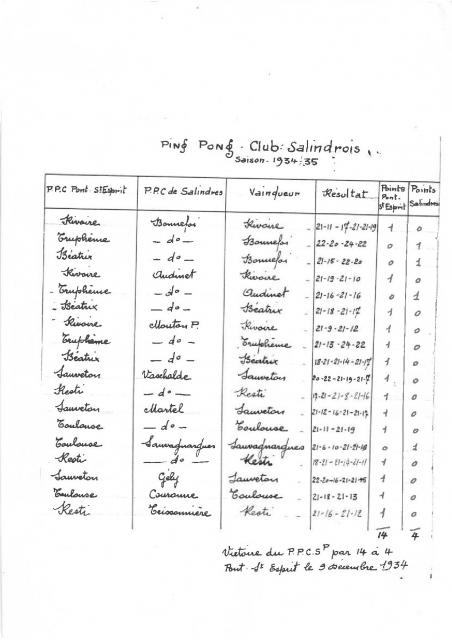 Ping Pong - Club: Salindrois
Saison - 1934-35
P.P.C Pont. St Esprit P.P.C de Salindres Vainqueur Résultat Points Pont. St Esprit Points Salindres
Rivoire Bonnefoi Rivoire - 21-11-17-21-21-19 1 0
Truphème - do - Bonnefoi - 22-20-24-22 0 1
Béatrix - do - Bonnefoi - 21-15-22-20 0 1
Rivoire Audinet Rivoire - 21-19-21-10 1 0
Truphème - do - Audinet - 21-16-21-16 0 1
Béatrix - do - Béatrix - 21-18-21-17 1 0
Rivoire Mouton P. Rivoire - 21-9-21-12 1 0
Truphème - do - Truphème - 21-13-24-22 1 0
Béatrix - do - Béatrix - 18-21-21-14-21-17 1 0
Sauveton Vaschalde Sauveton 20-22-21-19-21-7 1 0
Resti - do - Resti 21-8-21-16 1 0
Sauveton Martel Sauveton 21-12-16-21-21-17 1 0
Toulouse - do - Toulouse - 21-11-21-19 1 0
Toulouse Sauvagnargues Sauvagnargues 21-6-10-21-21-18 0 1
Resti - do - Resti - 18-21-21-14-21-11 1 0
Sauveton Gély Sauveton 22-20-16-21-21-15 1 0
Toulouse Couranne Toulouse - 21-18-21-13 1 0
Resti Teissonnière Resti - 21-16-21-12 1 0
14 4
Victoire du P.P.C.SP par 14 à 4
Pont. St Esprit le 9 décembre 1934